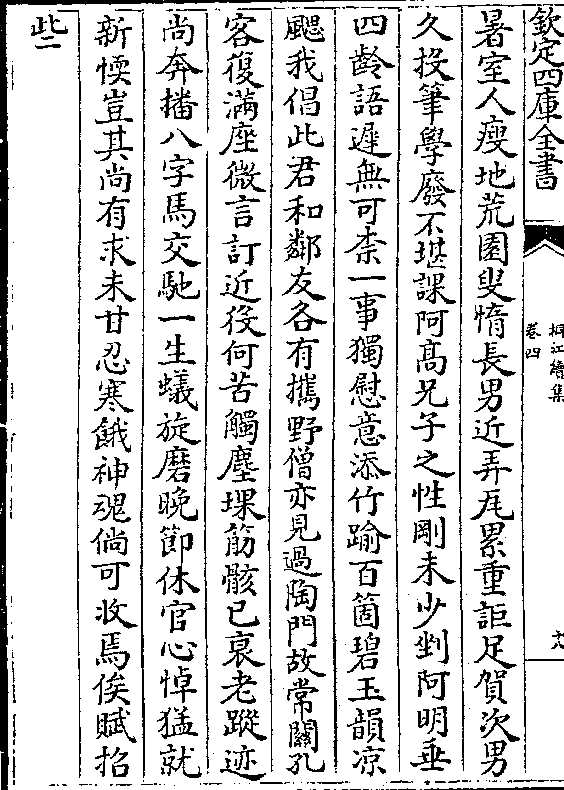 欽定四庫全書
桐江續集
卷四
十八
暑室人瘦地荒園叟惰長男近弄瓦累重詎足賀次男
久投筆學廢不堪課阿髙兄子之性剛未少剉阿明垂
四齡語遲無可柰一事獨慰意添竹踰百箇碧玉韻凉
颸我倡此君和鄰友各有攜野僧亦見過陶門故常關孔
客復滿座微言訂近役何苦觸塵堁筋骸已衰老蹤迹
尚奔播八字馬交馳一生蟻旋磨晚節休官心悼猛就
新愞豈其尚有求未甘忍寒餓神魂倘可收焉俟賦招
些二